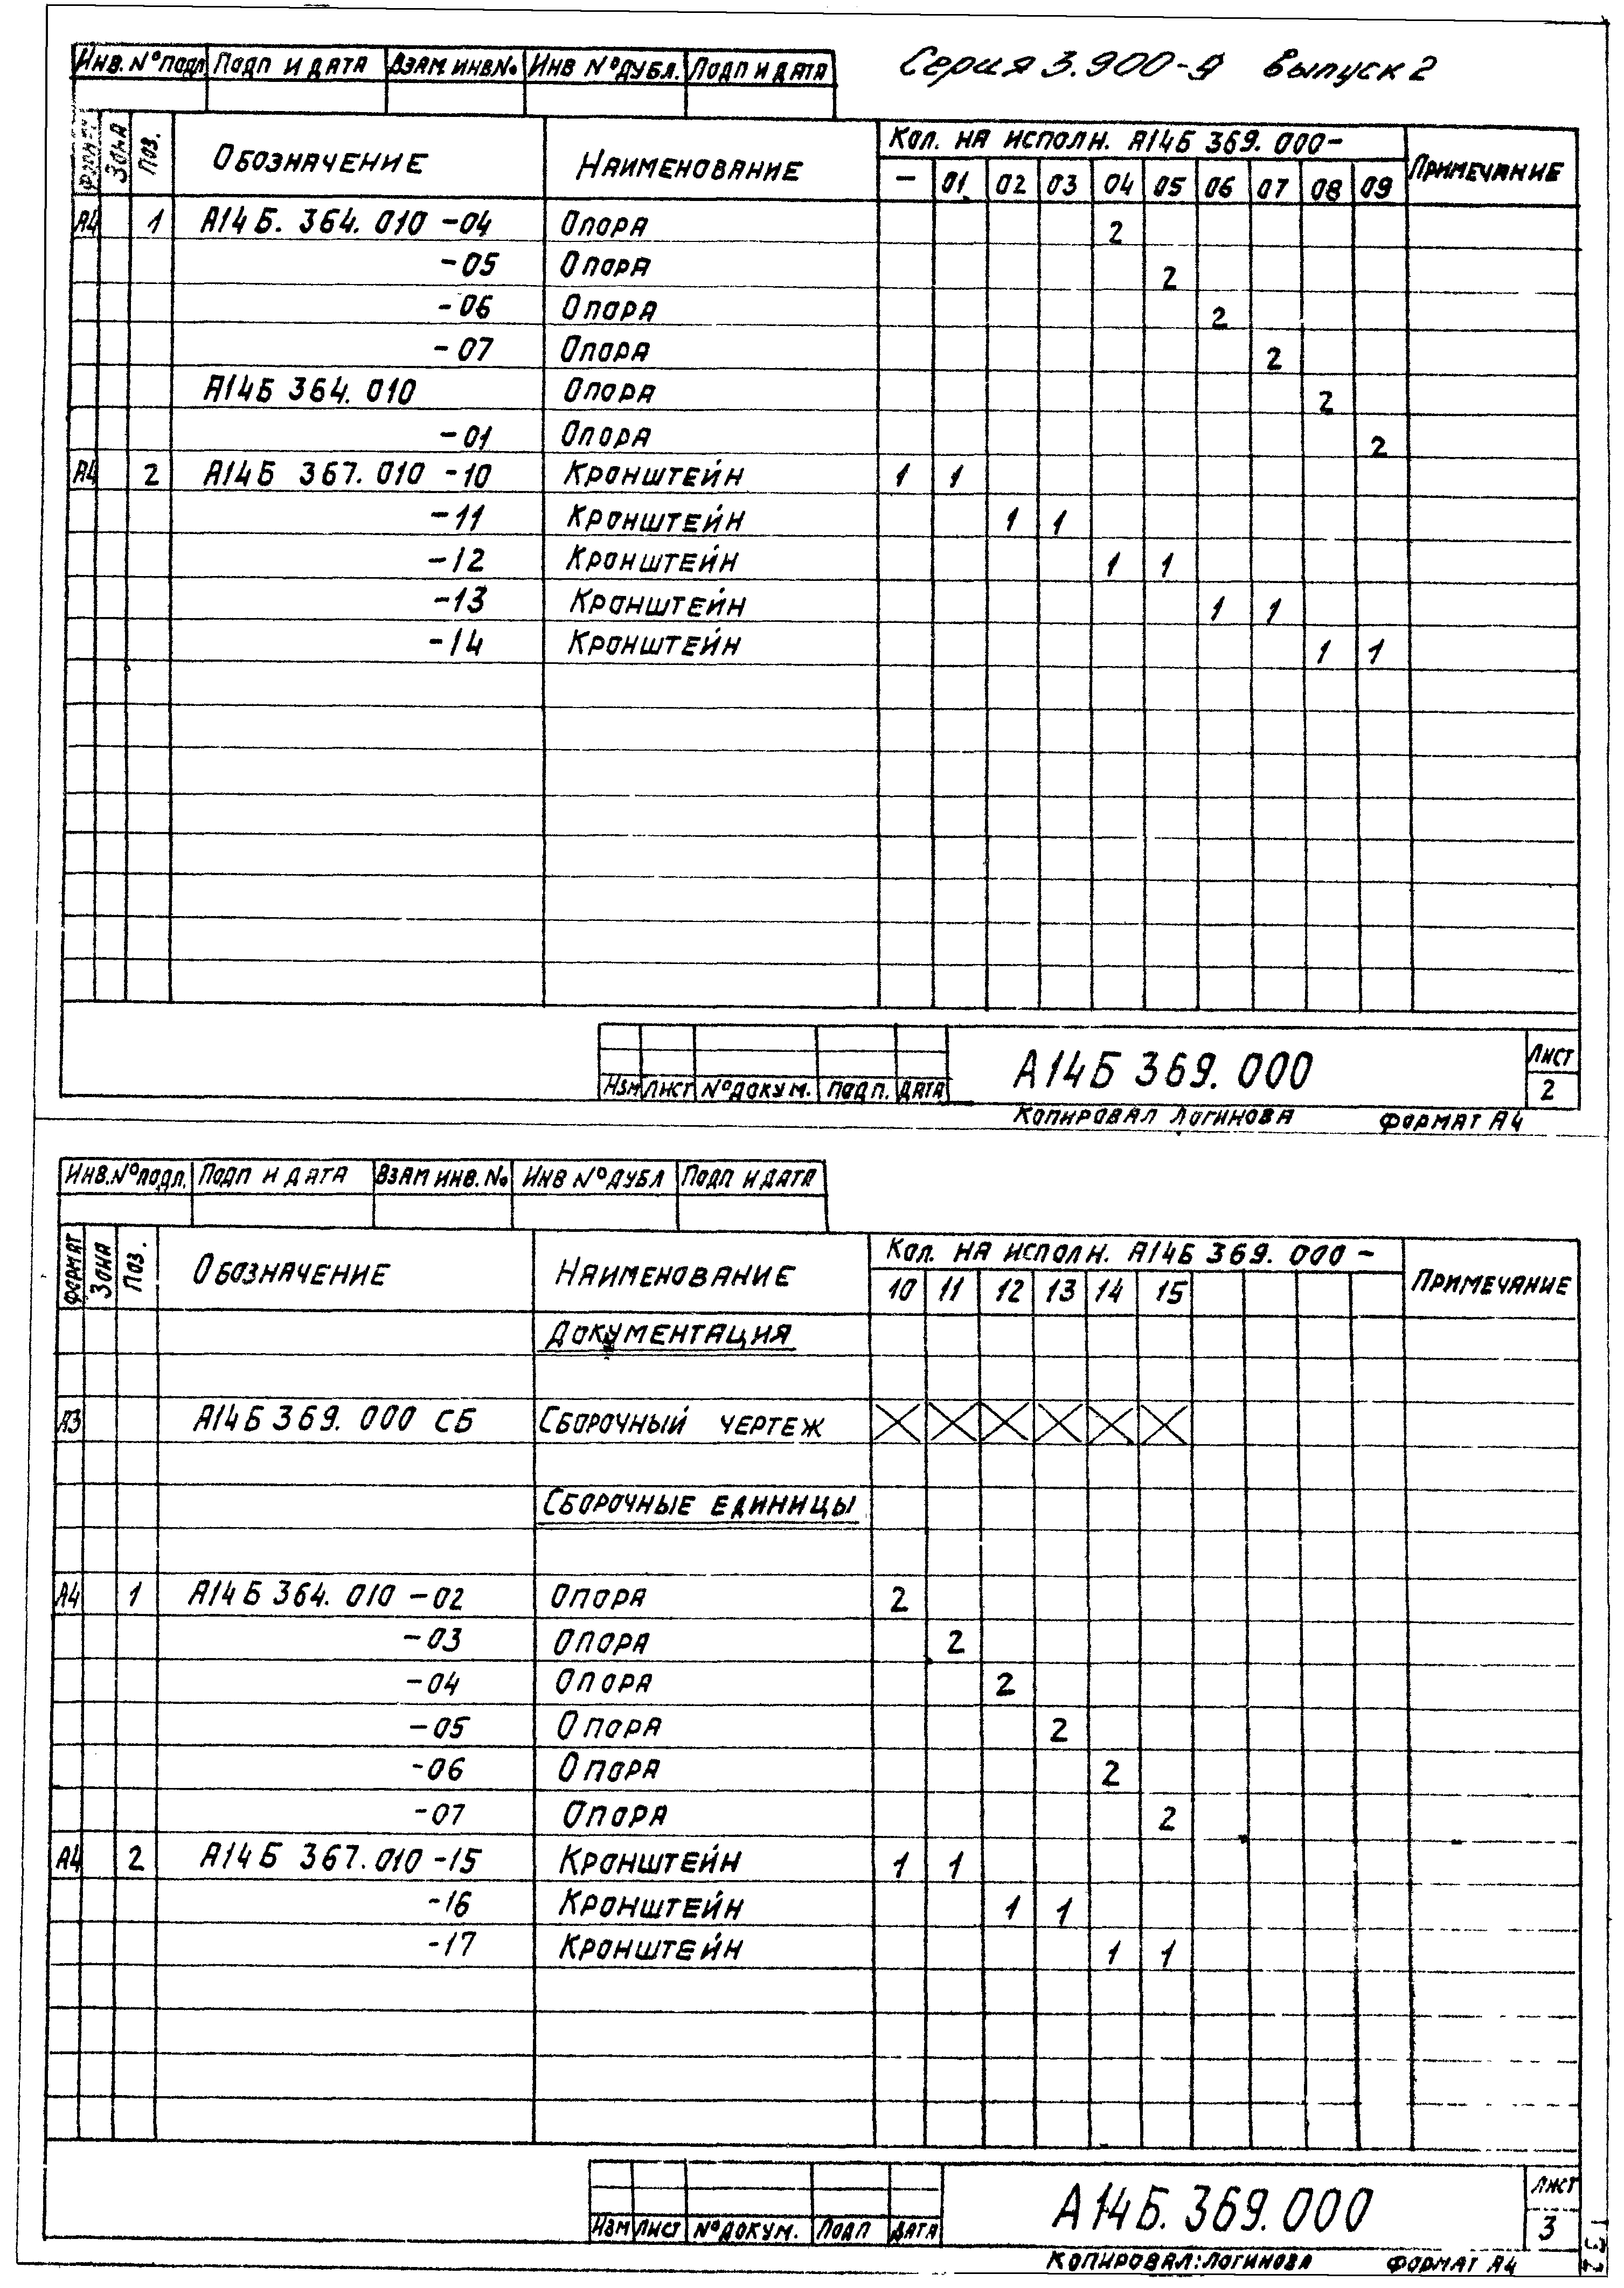 Серия 3.900-9 Выпуск 2
Инв. №подл Подп и дата Взам. инв№ Инв №дубл. Подп и дата
Формат Зона Поз. Обозначение Наименование Кол. на исполн. А14Б 369. 000- Примечание
- 01 02 03 04 05 06 07 08 09
А4 1 А14Б. 364. 010 -04 Опора 2
-05 Опора 2
-06 Опора 2
-07 Опора 2
А14Б 364. 010 Опора 2
-01 Опора 2
А4 2 А14Б 367. 010 -10 Кронштейн 1 1
-11 Кронштейн 1 1
-12 Кронштейн 1 1
-13 Кронштейн 1 1
-14 Кронштейн 1 1
А14Б 369. 000 Лист
Изм Лист №докум. Подп. Дата 2
Копировал Логинова Формат А4
Инв.№подл. Подп и дата Взам инв. № Инв №дубл Подп и дата
Формат Зона Поз. Обозначение Наименование Кол. на исполн. А14Б 369. 000 - Примечание
10 11 12 13 14 15
Документация
А3 А14Б 369. 000 СБ Сборочный чертеж
Сборочные единицы
А4 1 А14Б 364. 010 -02 Опора 2
-03 Опора 2
-04 Опора 2
-05 Опора 2
-06 Опора 2
-07 Опора 2
А4 2 А14Б 367. 010 -15 Кронштейн 1 1
-16 Кронштейн 1 1
-17 Кронштейн 1 1
А14Б. 369. 000 Лист
Изм Лист №докум. Подп Дата 3
Копировал: Логинова Формат А4